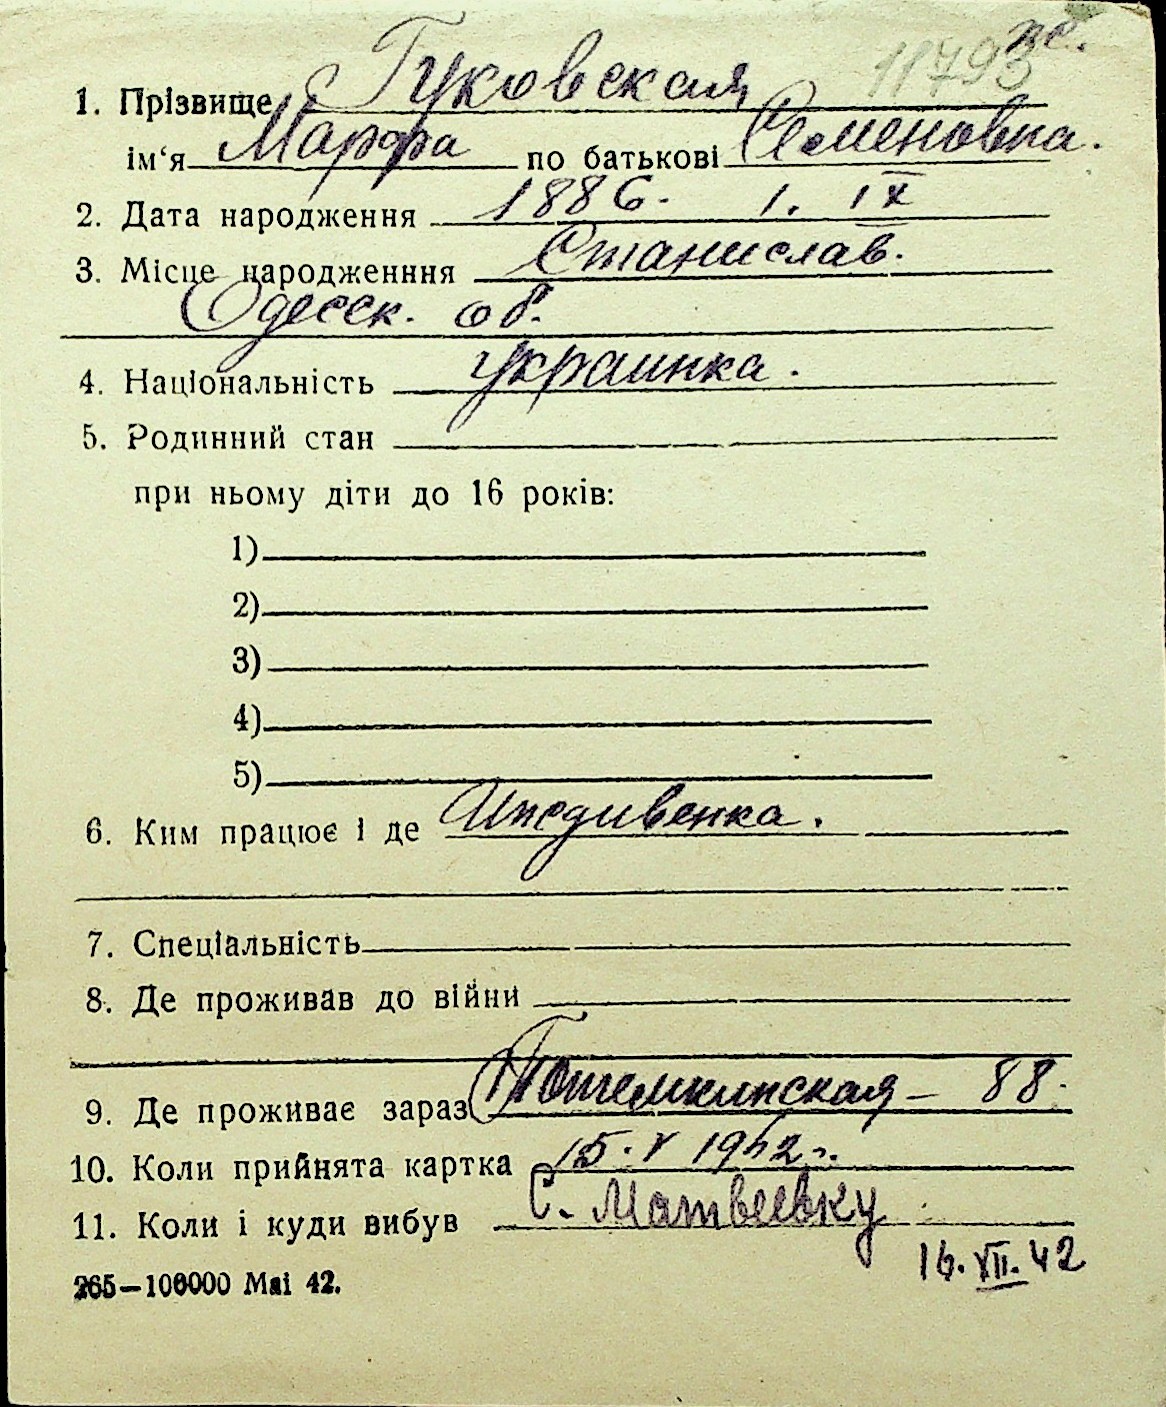 11793 жс.
1. Прізвище Гуковская
ім‘я Марфа по батькові Семеновна.
2. Дата народження 1886. 1. IX
3. Місце народженння Станислав.
Одесск. об.
4. Національність украинка.
5. Родинний стан
при ньому діти до 16 років:
1)
2)
3)
4)
5)
6. Ким працює і де Иждивенка.
7. Спеціальність
8. Де проживав до війни
9. Де проживає зараз Потемкинская – 88.
10. Коли прийнята картка 15. V 1942 г.
11. Коли і куди вибув С. Матвеевку
16. VII. 42
265–100000 Mai 42.